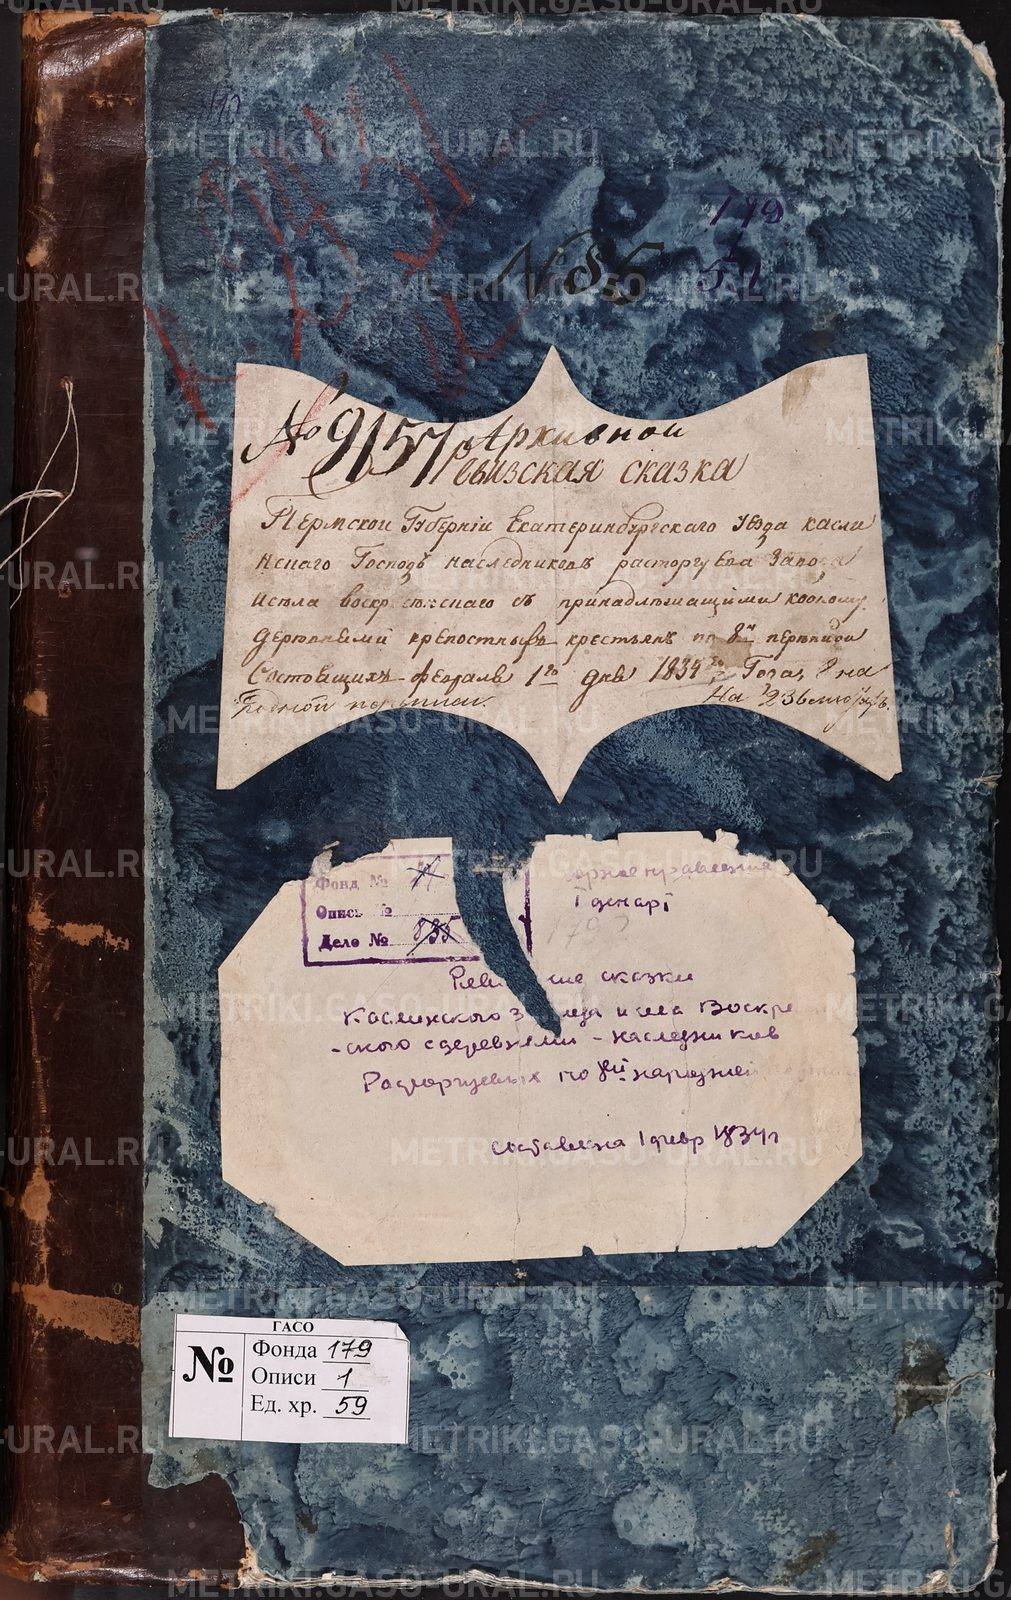 179
1
59
№ 86
№ 9157 Архивной
Ревизская сказка
Пермской Губерніи Екатеринбургскаго Уезда касли
нскаго Господъ наследниковъ расторгуева Завода
исела воскресенскаго съ принадлежащими кооному
деревнями крепостныхъ крестьянъ по 8й переписи
Состоящихъ февраля 1го дня 1834го Года
На 236
Фонд №
Опись №
Дело № 835
Горное правление
I департ
Реви ские сказки
Каслинского з вода и села Воскре
-ского с деревнями - наследников
Расторгуевых по 8й народней
составлена 1 февр 1834 г
ГАСО
№
Фонда 179
Описи 1
Ед. хр. 59
METRIKI.GASO-URAL.RU